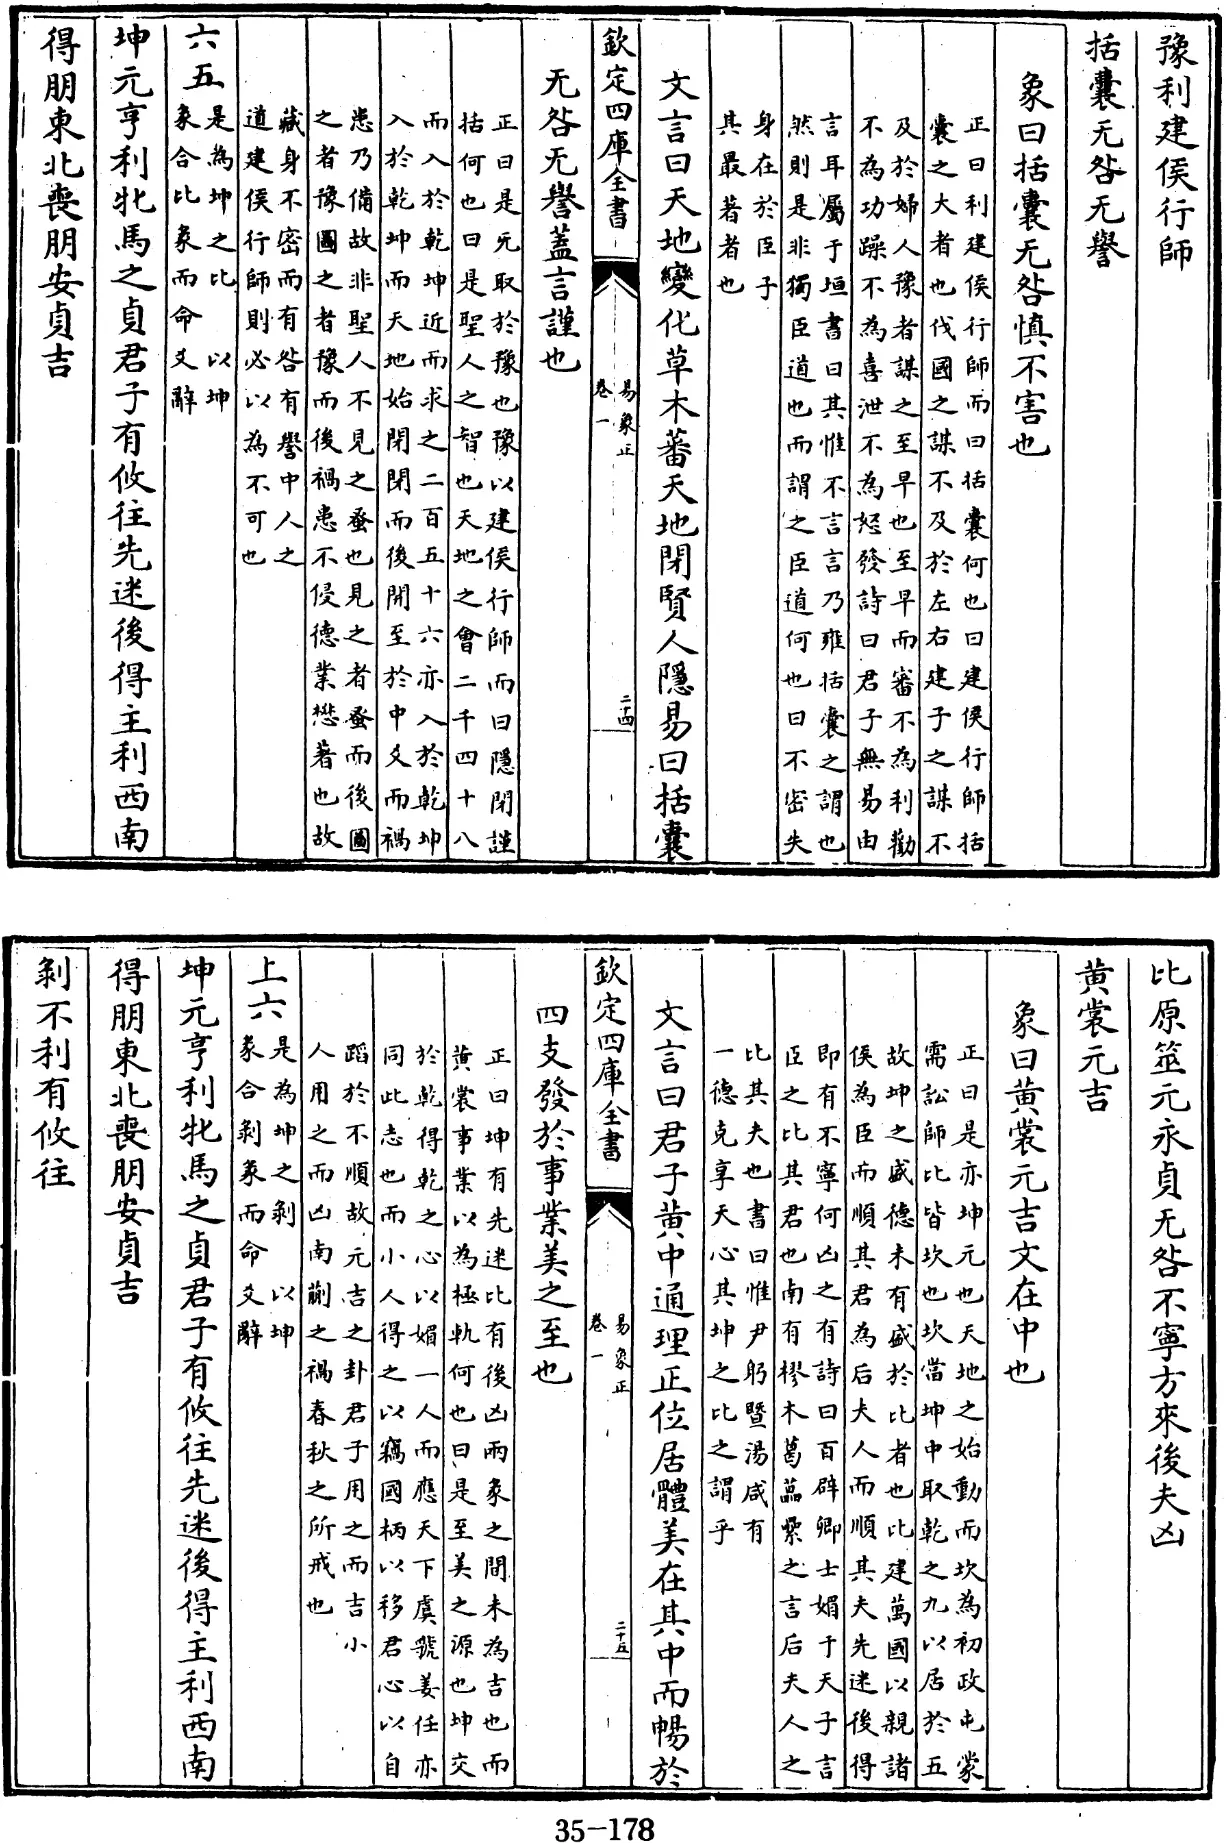 豫利建侯行師
括囊无咎无譽
象曰括囊无咎慎不害也
正曰利建侯行師而曰括囊何也曰建侯行師括
囊之大者也伐國之謀不及於左右建子之謀不
及於婦人豫者謀之至早也至早而審不為利勸
不為功躁不為喜泄不為怒發詩曰君子無易由
言耳屬于垣書曰其惟不言言乃雍括囊之謂也
然則是非獨臣道也而謂之臣道何也曰不密失
身在於臣子
其最著者也
文言曰天地變化草木蕃天地閉賢人隱易曰括囊
欽定四庫全書
易象正
卷一
二十四
无咎无譽蓋言謹也
正曰是旡取於豫也豫以建侯行師而曰隱閉謹
括何也曰是聖人之智也天地之會二千四十八
而入於乾坤近而求之二百五十六亦入於乾坤
入於乾坤而天地始閉閉而後開至於中爻而禍
患乃備故非聖人不見之蚤也見之者蚤而後圖
之者豫圖之者豫而後禍患不侵德業懋著也故
藏身不密而有咎有譽中人之
道建侯行師則必以為不可也
六五
是為坤之比 以坤
彖合比彖而命爻辭
坤元亨利牝馬之貞君子有攸往先迷後得主利西南
得朋東北喪朋安貞吉
比原筮元永貞无咎不寧方來後夫凶
黄裳元吉
象曰黄裳元吉文在中也
正曰是亦坤元也天地之始動而坎為初政屯蒙
需訟師比皆坎也坎當坤中取乾之九以居於五
故坤之盛德未有盛於比者也比建萬國以親諸
侯為臣而順其君為后夫人而順其夫先迷後得
即有不寧何凶之有詩曰百辟卿士媚于天子言
臣之比其君也南有樛木葛藟纍之言后夫人之
比其夫也書曰惟尹躬暨湯咸有
一德克享天心其坤之比之謂乎
文言曰君子黄中通理正位居體美在其中而暢於
欽定四庫全書
易象正
卷一
二十五
四支發於事業美之至也
正曰坤有先迷比有後凶兩象之間未為吉也而
黄裳事業以為極軌何也曰是至美之源也坤交
於乾得乾之心以媚一人而應天下虞虢姜任亦
同此志也而小人得之以竊國柄以移君心以自
蹈於不順故元吉之卦君子用之而吉小
人用之而凶南蒯之禍春秋之所戒也
上六
是為坤之剝 以坤
彖合剝彖而命爻辭
坤元亨利牝馬之貞君子有攸往先迷後得主利西南
得朋東北喪朋安貞吉
剝不利有攸往
35-178